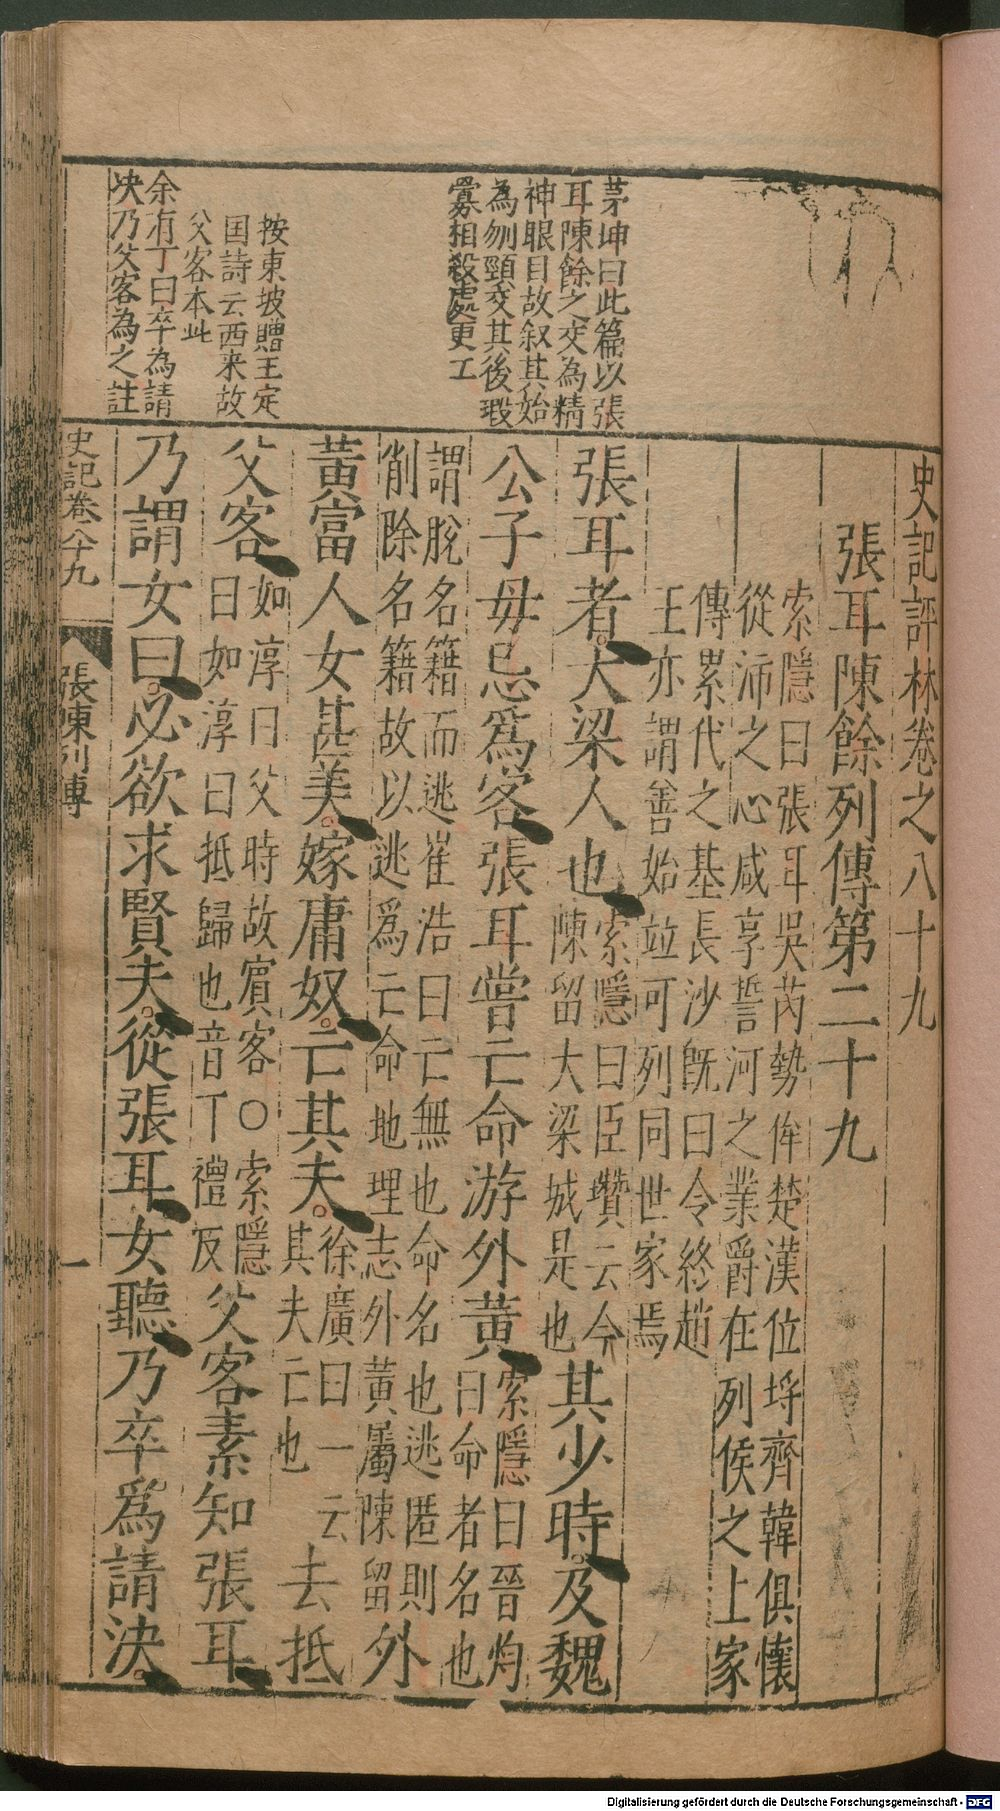 茅坤曰此篇以張
耳陳餘之交為精
神眼目故叙其始
為刎頸交其後㪅
寡相殺處更工
按東坡贈王定
国詩云西来故
父客本此
余有丁曰卒為請
决乃父客為之註
史記評林卷之八十九
張耳陳餘列傳第二十九
索隱曰張耳吳芮勢侔楚漢位埒齊韓俱懷
從沛之心咸享誓河之業爵在列侯之上家
傳累代之基長沙既曰令終趙
王亦謂善始並可列同世家焉
張耳者大梁人也
索隱曰臣瓚云今
陳留大梁城是也
其少時及魏
公子毋忌爲客張耳嘗亡命游外黄
索隱曰晉灼
曰命者名也
謂脫名籍而逃崔浩曰亡無也命名也逃匿則
削除名籍故以逃爲亡命地理志外黄屬陳留
外
黄富人女甚美嫁庸奴亡其夫
徐廣曰一云
其夫亡也
去抵
父客
如淳曰父時故賓客〇索隱
曰如淳曰抵歸也音丁禮反
父客素知張耳
乃謂女曰必欲求賢夫從張耳女聽乃卒爲請決
史記卷八十九
張陳列傳
一
Digitalisierung gefördert durch die Deutsche Forschungsgemeinschaft - DFG